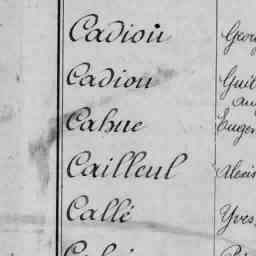 Cadiou Georg
Cadiou Guil
Cahue Eugen
Cailleul Alexis
Callé Yves,